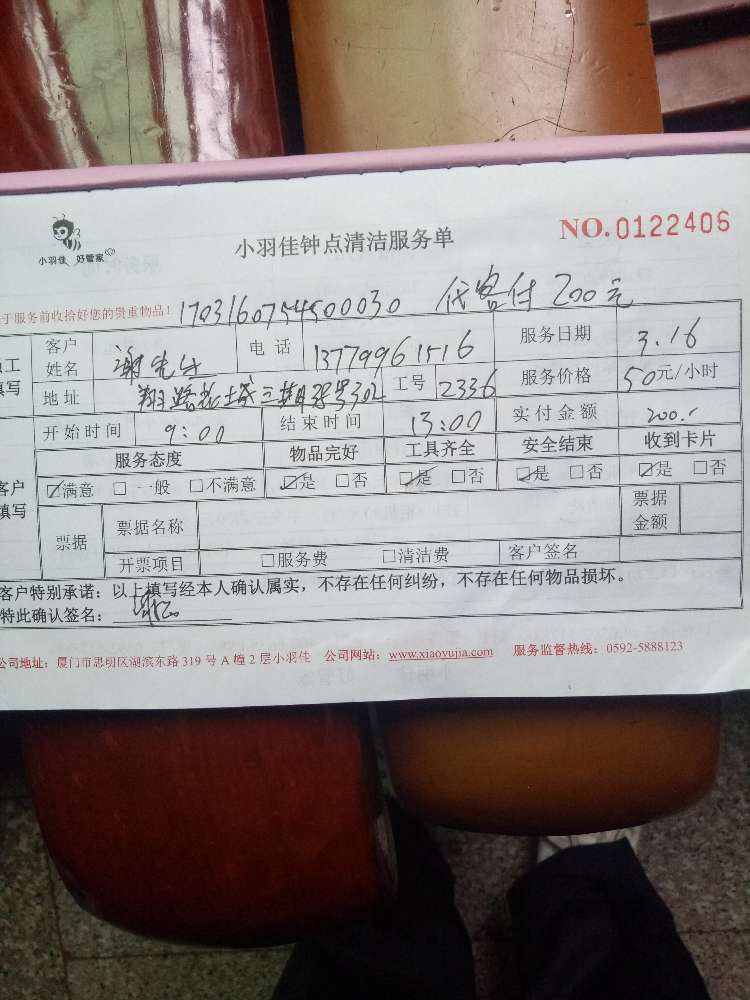 小羽佳 好管家
小羽佳钟点清洁服务单
NO.0122406
于服务前收拾好您的贵重物品!
1703160754500030 代客付 200元
工 填写 客户姓名 谢先生 电话 13779961516 服务日期 3.16
地址 三期 302 工号 2336 服务价格 50元/小时
开始时间 9:00 结束时间 13:00 实付金额 200.
客户填写 服务态度 物品完好 工具齐全 安全结束 收到卡片
☑满意 □一般 □不满意 ☑是 □否 ☑是 □否 ☑是 □否 ☑是 □否
票据 票据名称 票据金额
开票项目 □服务费 □清洁费 客户签名
客户特别承诺:以上填写经本人确认属实,不存在任何纠纷,不存在任何物品损坏。
特此确认签名:
公司地址:厦门市思明区湖滨东路 319 号 A 幢 2 层小羽佳 公司网站:www.xiaoyujia.com 服务监督热线:0592-5888123